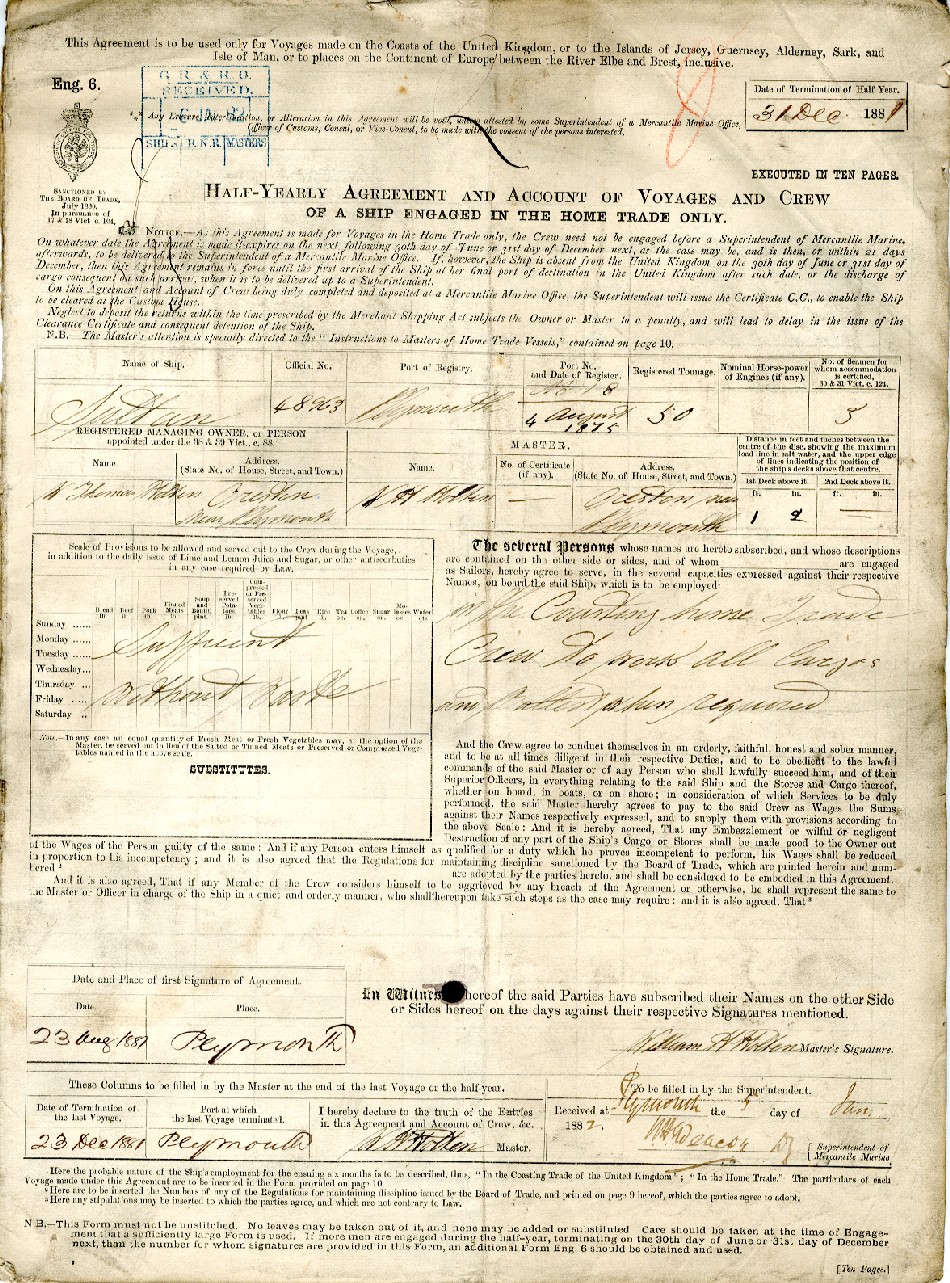 This Agreement is to be used only for Voyages made on the Coasts of the United Kingdom, or to the Islands of Jersey, Guernsey, Alderney, Sark, and
Isle of Man, or to places on the Continent of Europe between the River Elbe and Brest, inclusive.
Eng. 6.
G. R. & R. O.
RECEIVED.
SHIPS R.N.R. MASTERS
8
Date of Termination of Half Year.
31 Dec. 1881
Any Erasure, Interlineation, or Alteration in this Agreement will be void, unless attested by some Superintendent of a Mercantile Marine Office,
Officer of Customs, Consul, or Vice-Consul, to be made with the consent of the persons interested.
EXECUTED IN TEN PAGES.
SANCTIONED BY
THE BOARD OF TRADE,
July 1880.
In pursuance of
17 & 18 Vict. c. 104.
HALF-YEARLY AGREEMENT AND ACCOUNT OF VOYAGES AND CREW
OF A SHIP ENGAGED IN THE HOME TRADE ONLY.
NOTICE.—As this Agreement is made for Voyages in the Home Trade only, the Crew need not be engaged before a Superintendent of Mercantile Marine.
On whatever date the Agreement is made it expires on the next following 30th day of June or 31st day of December next, as the case may be, and is then, or within 21 days
afterwards, to be delivered to the Superintendent of a Mercantile Marine Office. If, however, the Ship is absent from the United Kingdom on the 30th day of June or 31st day of
December, then this Agreement remains in force until the first arrival of the Ship at her final port of destination in the United Kingdom after such date, or the discharge of
cargo consequent on such arrival, when it is to be delivered up to a Superintendent.
On this Agreement and Account of Crew being duly completed and deposited at a Mercantile Marine Office, the Superintendent will issue the Certificate C.C., to enable the Ship
to be cleared at the Custom House.
Neglect to deposit the returns within the time prescribed by the Merchant Shipping Act subjects the Owner or Master to a penalty, and will lead to delay in the issue of the
Clearance Certificate and consequent detention of the Ship.
N.B. The Master's attention is specially directed to the "Instructions to Masters of Home Trade Vessels," contained on page 10.
Name of Ship. Official No. Port of Registry. Port No. and Date of Register. Registered Tonnage. Nominal Horse-power of Engines (if any). No. of Seamen for whom accommodation is certified, 30 & 31 Vict. c. 124.
48963 Plymouth No 8
4 August 1875 50 5
REGISTERED MANAGING OWNER, or PERSON
appointed under the 38 & 39 Vict. c. 88.
MASTER.
Distance in feet and inches between the
centre of the disc, showing the maximum
load line in salt water, and the upper edge
of lines indicating the position of
the ship's decks above that centre.
Name. Address. (State No. of House, Street, and Town.) Name. No. of Certificate (if any). Address. (State No. of House, Street, and Town.) 1st Deck above it. 2nd Deck above it.
ft. in. ft. in.
Thomas Holten Oreston W H Holten — Oreston near
Near Plymouth Plymouth 1 9 —
Scale of Provisions to be allowed and served out to the Crew during the Voyage,
in addition to the daily issue of Lime and Lemon Juice and Sugar, or other antiscorbutics
in any case required by Law.
Sunday
Monday
Tuesday
Wednesday
Thursday
Friday
Saturday
Sufficient
Without Waste
Note.—In any case an equal quantity of Fresh Meat or Fresh Vegetables may, at the option of the
Master, be served out in lieu of the Salted or Tinned Meats or Preserved or Compressed Vegetables
named in the above scale.
SUBSTITUTES.
The several Persons whose names are hereto subscribed, and whose descriptions
are contained on the other side or sides, and of whom are engaged
as Sailors, hereby agree to serve, in the several capacities expressed against their respective
Names, on board the said Ship, which is to be employed
in the Coasting home Trade
Crew to work all Cargos
and Ballast when required
And the Crew agree to conduct themselves in an orderly, faithful, honest and sober manner,
and to be at all times diligent in their respective Duties, and to be obedient to the lawful
commands of the said Master or of any Person who shall lawfully succeed him, and of their
Superior Officers, in everything relating to the said Ship and the Stores and Cargo thereof,
whether on board, in boats, or on shore; in consideration of which Services to be duly
performed, the said Master hereby agrees to pay to the said Crew as Wages the Sums
against their Names respectively expressed, and to supply them with provisions according to
the above Scale: And it is hereby agreed, That any Embezzlement or wilful or negligent
Destruction of any part of the Ship's Cargo or Stores shall be made good to the Owner out
of the Wages of the Person guilty of the same: And if any Person enters himself as qualified for a duty which he proves incompetent to perform, his Wages shall be reduced
in proportion to his incompetency; and it is also agreed that the Regulations for maintaining discipline sanctioned by the Board of Trade, which are printed herein and num-
bered are adopted by the parties hereto, and shall be considered to be embodied in this Agreement.
And it is also agreed, That if any Member of the Crew considers himself to be aggrieved by any breach of the Agreement or otherwise, he shall represent the same to
the Master or Officer in charge of the Ship in a quiet and orderly manner, who shall hereupon take such steps as the case may require: and it is also agreed, That*
Date and Place of first Signature of Agreement.
Date. Place.
23 Aug 1881 Plymouth
In Witness whereof the said Parties have subscribed their Names on the other Side
or Sides hereof on the days against their respective Signatures mentioned.
William H Holten Master's Signature.
These Columns to be filled in by the Master at the end of the last Voyage or the half-year.
Date of Termination of the last Voyage. Port at which the last Voyage terminated. I hereby declare to the truth of the Entries in this Agreement and Account of Crew, &c.
23 Dec 1881 Plymouth W H Holten Master.
To be filled in by the Superintendent.
Received at Plymouth the 5 day of Jan
1882.
Superintendent of
Mercantile Marine
Here the probable nature of the Ship's employment for the ensuing six months is to be described, thus, "In the Coasting Trade of the United Kingdom"; "In the Home Trade." The particulars of each
Voyage made under this Agreement are to be inserted in the Form provided on page 10
Here are to be inserted the Numbers of any of the Regulations for maintaining discipline issued by the Board of Trade, and printed on page 9 hereof, which the parties agree to adopt.
Here any stipulations may be inserted to which the parties agree, and which are not contrary to Law.
N.B.—This Form must not be unstitched. No leaves may be taken out of it, and none may be added or substituted. Care should be taken at the time of Engage-
ment that a sufficiently large Form is used. If more men are engaged during the half-year, terminating on the 30th day of June or 31st day of December
next, than the number for whom signatures are provided in this Form, an additional Form Eng. 6 should be obtained and used.
[Ten Pages.]